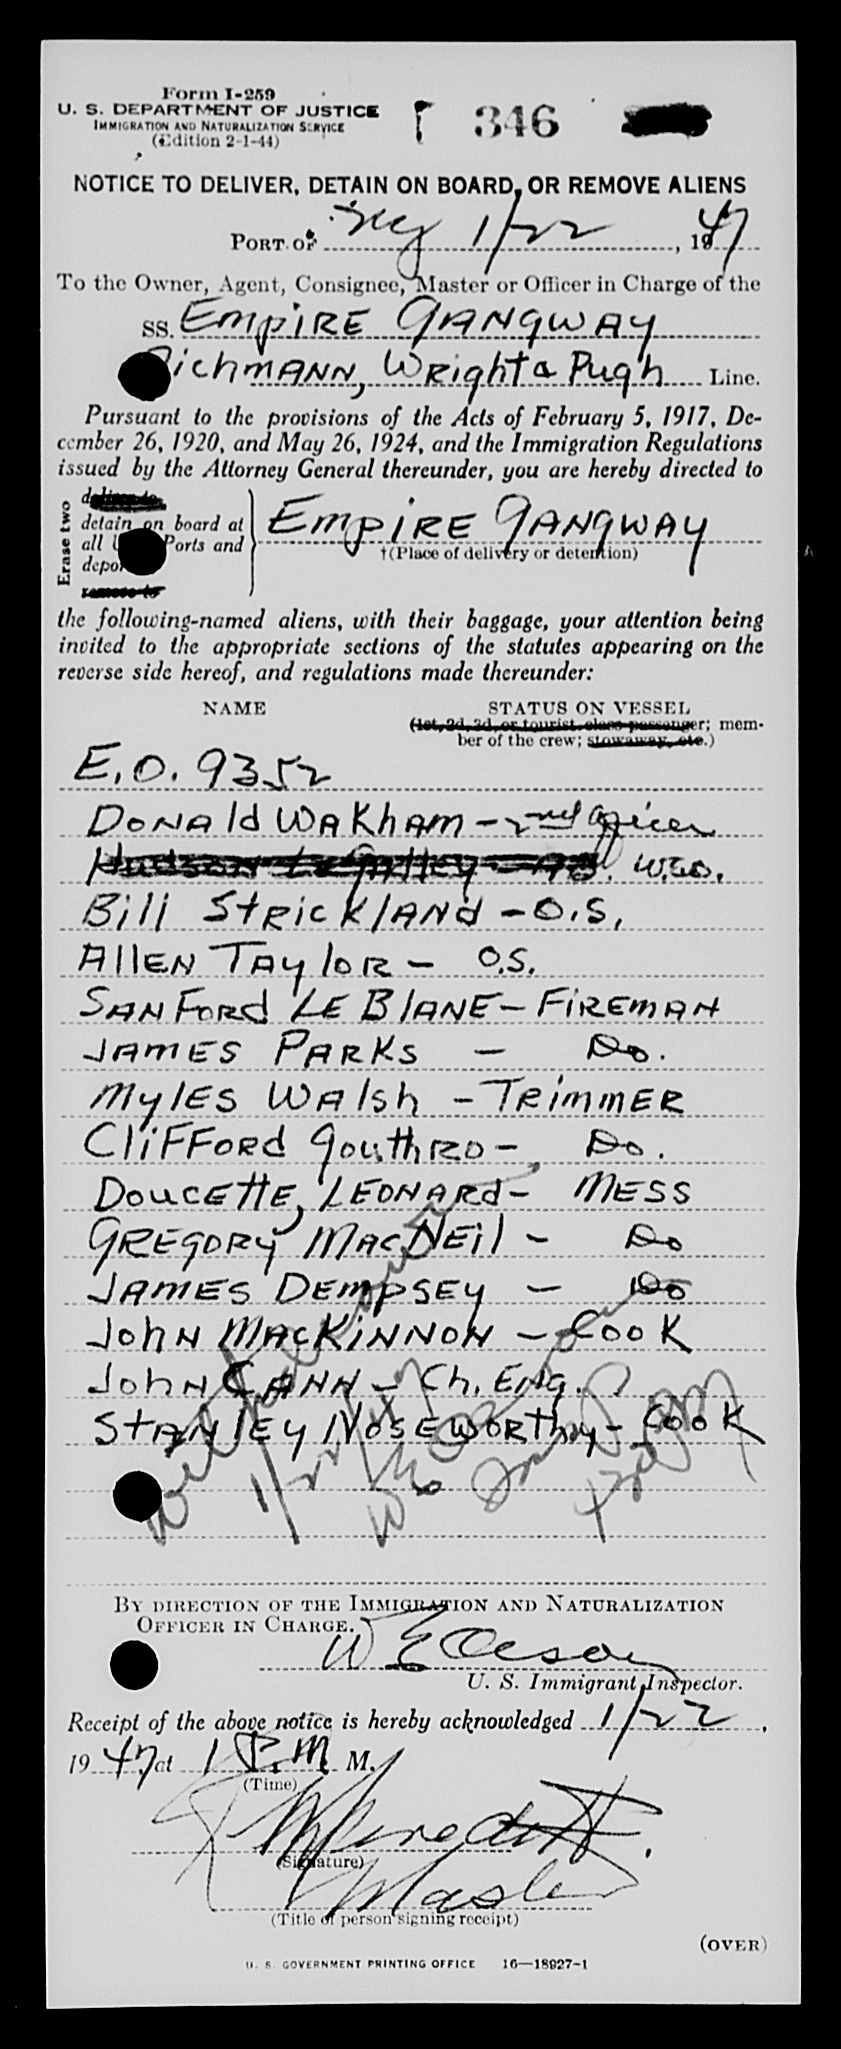 Form I-259
U. S. DEPARTMENT OF JUSTICE
IMMIGRATION AND NATURALIZATION SERVICE
(Edition 2-1-44)
346
NOTICE TO DELIVER, DETAIN ON BOARD, OR REMOVE ALIENS
PORT OF 1/22, 1947
To the Owner, Agent, Consignee, Master or Officer in Charge of the
SS. EMPIRE GANGWAY
ichMANN, WRight & Pugh Line.
Pursuant to the provisions of the Acts of February 5, 1917, De-
cember 26, 1920, and May 26, 1924, and the Immigration Regulations
issued by the Attorney General thereunder, you are hereby directed to
Erase two
deliver to
detain on board at
all Ports and
remove to
EMPIRE GANGWAY
†(Place of delivery or detention)
the following-named aliens, with their baggage, your attention being
invited to the appropriate sections of the statutes appearing on the
reverse side hereof, and regulations made thereunder:
NAME STATUS ON VESSEL
(1st, 2d, 3d, or tourist class passenger; mem-
ber of the crew; stowaway, etc.)
E.O. 9352
DONAld WAKhAM - 2nd Officer
W.E.O.
Bill STRICKlANd - O.S.
AllEN TAYloR - O.S.
SANFoRd LE BlANE - FIREMAN
JAMES PARKS - Do.
MylES WAlsh - TRIMMER
CliFFoRd GouthRo - Do.
DoucEttE, LEONARd - MESS
GREGORY MACNEil - Do
JAMES DEMPSEY - Do
JohN MACKINNON - Cook
JohN CANN - Ch. ENg.
STANlEy NosEwoRthy - Cook
1/22/47
BY DIRECTION OF THE IMMIGRATION AND NATURALIZATION
OFFICER IN CHARGE.
W E Oleson
U. S. Immigrant Inspector.
Receipt of the above notice is hereby acknowledged 1/22,
1947 at 1 P.M. M.
(Time)
Meredith.
(Signature)
Master
(Title of person signing receipt)
(OVER)
U. S. GOVERNMENT PRINTING OFFICE 16—18927-1